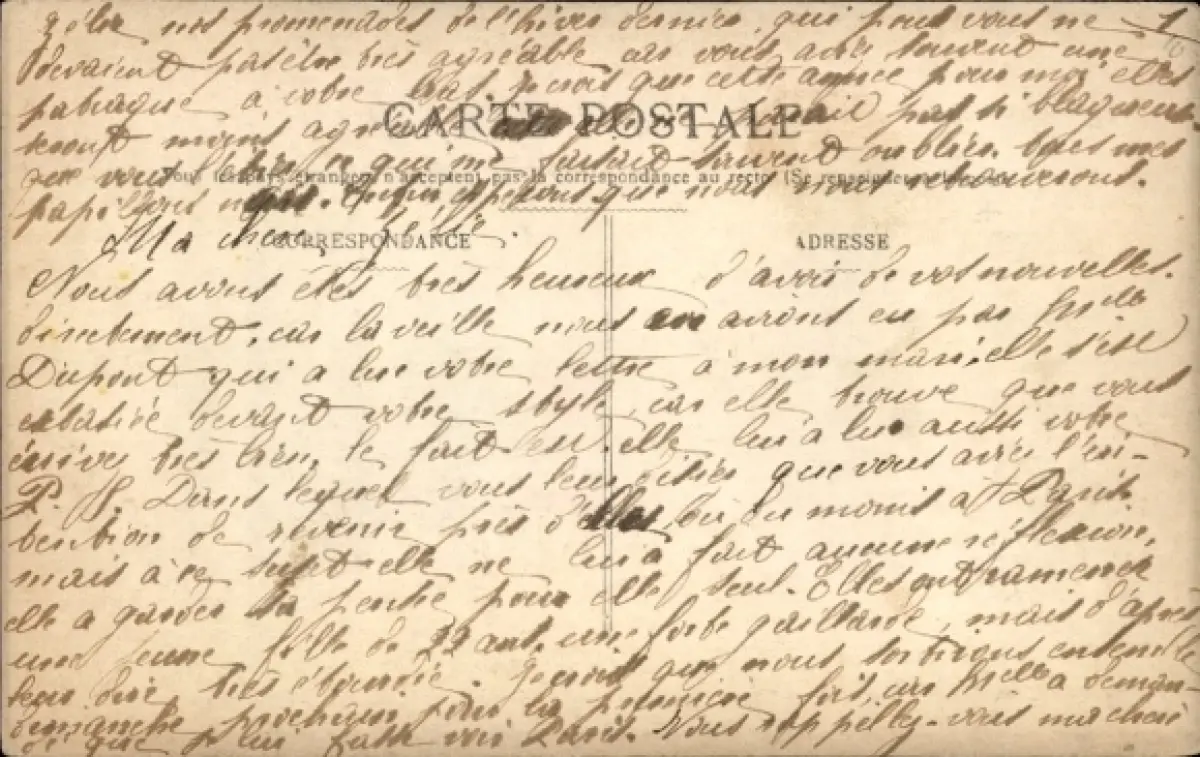 zélie, nos promenades de l'hiver dernier, qui pour vous ne
devaient pas être très agréable car vous aviez souvent une
à votre bras, je crois que cette année pour moi elles
seront moins pas si blagueuse
que vous l'étiez ce qui me faisait souvent oublier tous mes
papillons noirs. Enfin espérons que nous nous retrouverons.
CARTE POSTALE
Tous les pays étrangers n'acceptent pas la correspondance au recto (Se renseigner
CORRESPONDANCE
ADRESSE
1
Ma chère Zélie.
Nous avons étés très heureux d'avoir de vos nouvelles
directement, car la veille nous en avions eu par Melle
Dupont qui a lue votre lettre à mon mari, elle s'est
extasiée devant votre style, car elle trouve que vous
écrivez très bien, le fait est. elle lui a lue aussi votre
P.S. Dans lequel vous leur disiez que vous aviez l'in-
tention de revenir près d'elles, ou du moins à Paris
mais à ce sujet elle ne lui a fait aucune réflexion,
elle a garder sa pensée pour elle seul. Elles ont ramener
une jeune fille de 22 ans, une forte gaillarde, mais d'après
leur dire très étourdie. Je crois que nous sortirons ensemble
dimanche prochain pour la première fois, car Melle a deman-
dé que je lui fasse voir Paris. Vous rappellez-vous ma chère